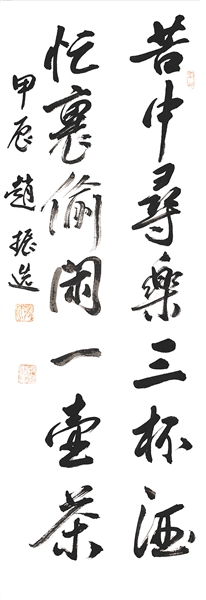 苦中尋樂三杯酒
忙裏偷閑一壶茶
甲辰 趙振逸